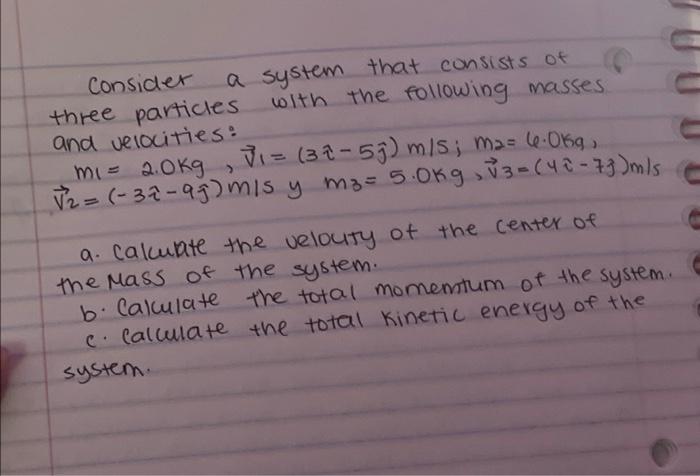 Consider a system that consists of
three particles with the following masses
and velocities:
m1 = 2.0kg, v⃗1 = (3î - 5ĵ) m/s; m2= kg,
v⃗2 = (-3î - 9ĵ) m/s y m3 = 5.0kg, v⃗3 = (4î - 7ĵ) m/s
a. Calculate the velocity of the center of
the Mass of the system.
b. Calculate the total momentum of the system.
c. Calculate the total kinetic energy of the
system.